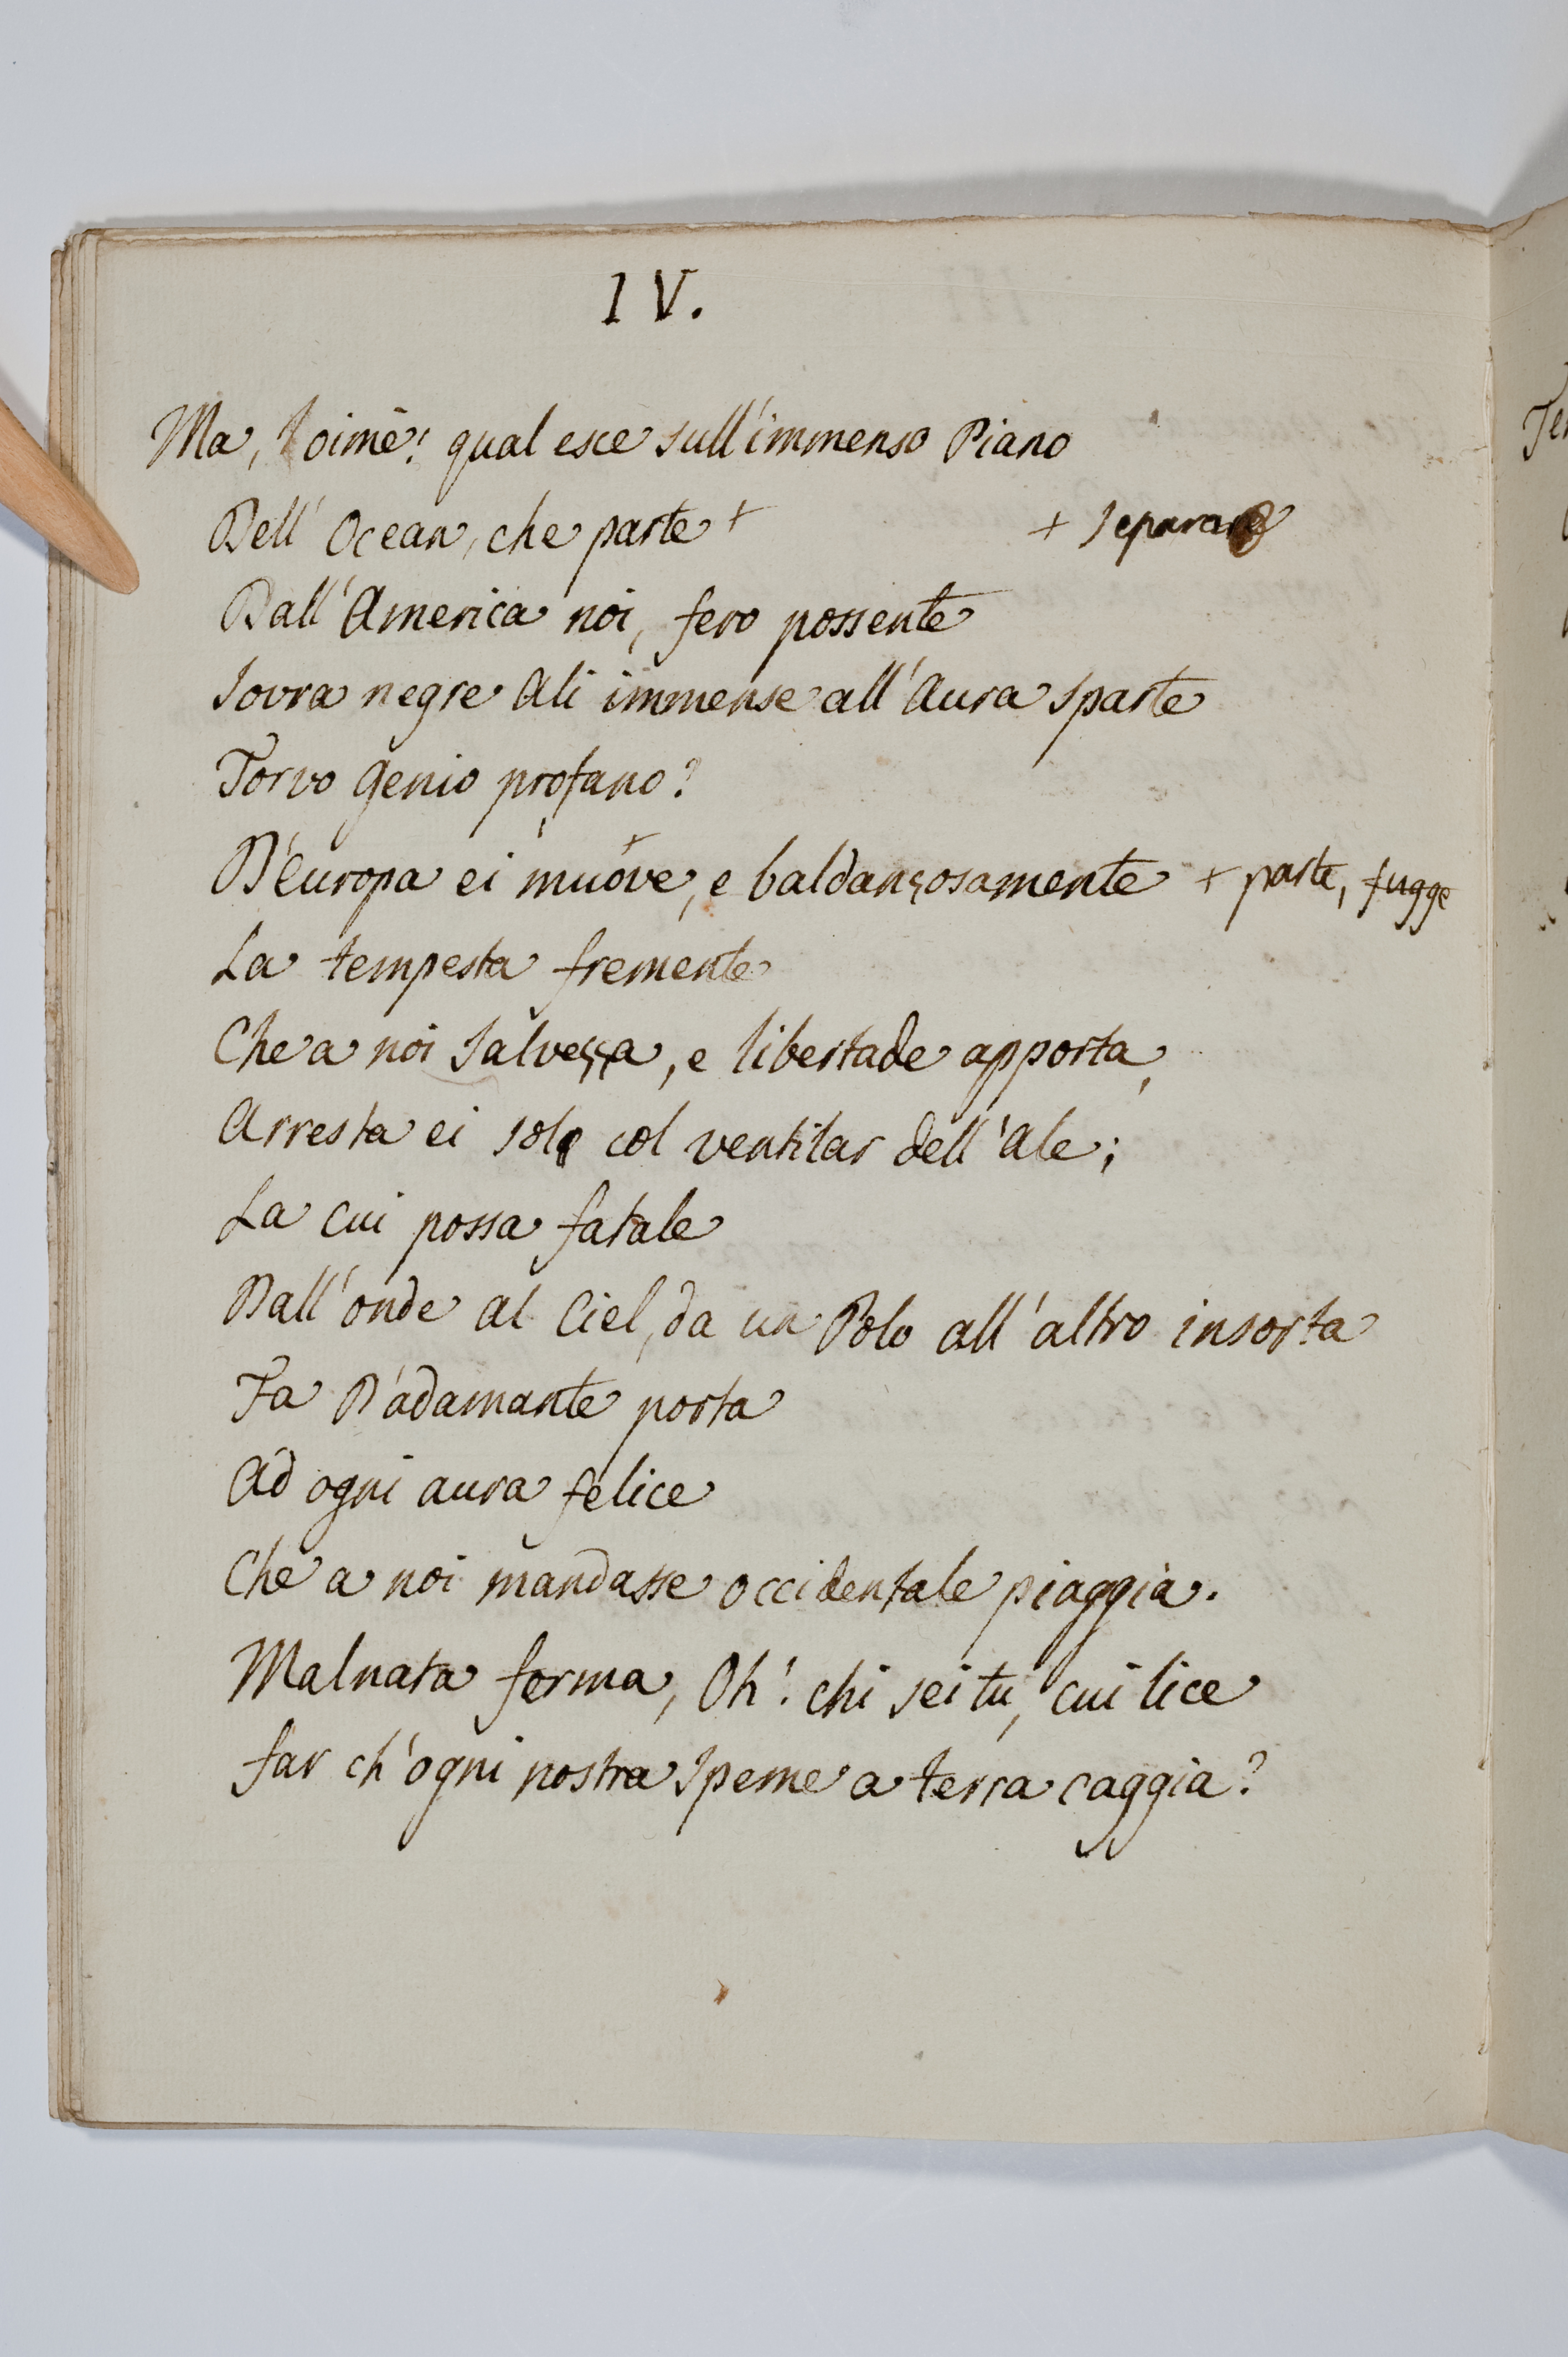 IV.
Ma, oimè! qual esce sull'immenso Piano
Dell' Ocean, che parte + + separare
Dall'America noi, fero possente
Sovra negre Ali immense all'Aura sparte
Torvo Genio profano?
D'Europa ei muove +, e baldanzosamente + parte, fugge
La tempesta fremente
Che a noi salvezza, e libertade apporta,
Arresta ei solo col ventilar dell'Ale;
La cui possa fatale
Dall'onde al Ciel, da un Polo all'altro insorta
Fa D'adamante porta
Ad ogni aura felice
Che a noi mandasse occidentale piaggia.
Malnata forma, Oh! chi sei tu, cui lice
Far ch'ogni nostra speme a terra caggia?